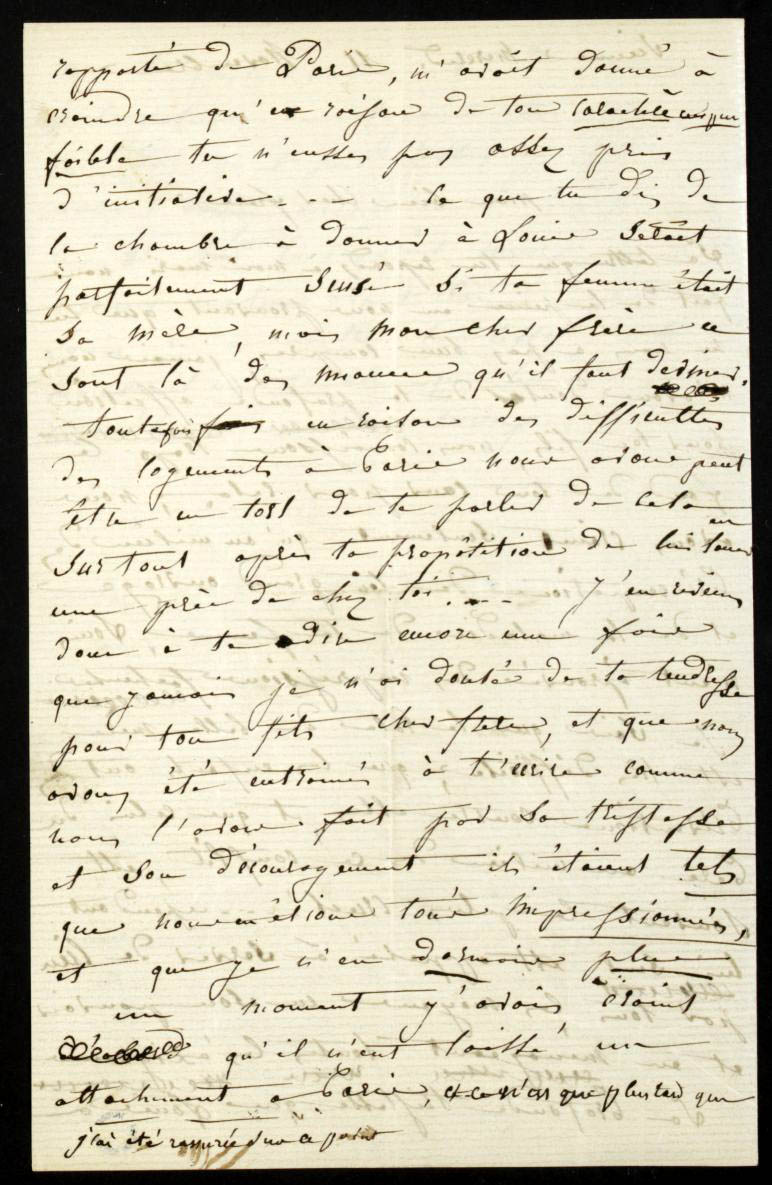 rapporté de Paris, m'avait donné à
craindre qu'en raison de ton caractère un peu
faible tu n'eusses pas assez pris
d'initiative - - - ce que tu dis de
la chambre à donner à Louis serait
parfaitement sensé si ta femme était
sa mère, mais mon cher frère ce
sont là des nuances qu'il faut deviner.
toutefois en raison des difficultés
des logements à Paris nous avons peut
être un tort de te parler de cela
surtout après ta proposition de lui en louer
une près de chez toi . . - - J'en reviens
donc à te dire encore une fois
que jamais je n'ai douté de ta tendresse
pour ton fils cher frère, et que nous
avons été entrainés à t'écrire comme
nous l'avons fait par sa tristesse
et son découragement ils étaient tels
que nous en étions tous impressionnés,
et que je n'en dormais plus
un moment j'avais craint
qu'il n'eut laissé un
attachement a Paris, et ce n'est que plus tard que
j'ai été rassurée sur ce point